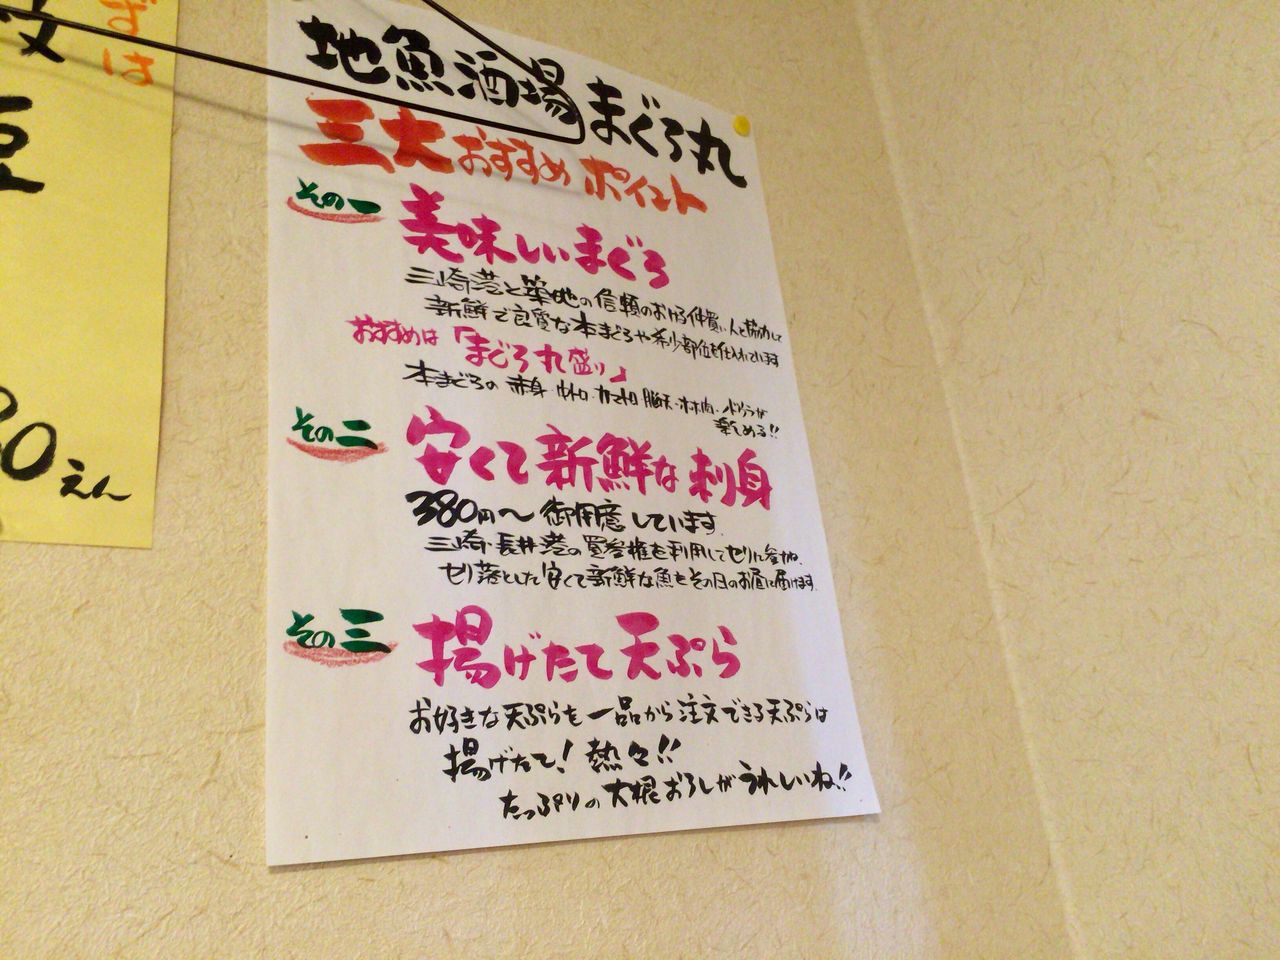 ずは
豆
80えん
地魚酒場まぐろ丸
三大おすすめポイント
その一 美味しいまぐろ
三崎港と築地の信頼のおける仲買い人と協力して
新鮮で良質な本まぐろや希少部位を仕入れています
おすすめは「まぐろ丸盛り」
本まぐろの赤身・中トロ・カマトロ・脳天・ホホ肉・
楽しめる!!
その二 安くて新鮮な刺身
380円〜御用意しています
三崎・長井港の買参権を利用してセリに参加、
セリ落とした安くて新鮮な魚をその日のお昼に届けます
その三 揚げたて天ぷら
お好きな天ぷらを一品から注文できる天ぷらは
揚げたて!熱々!!
たっぷりの大根おろしがうれしいね!!